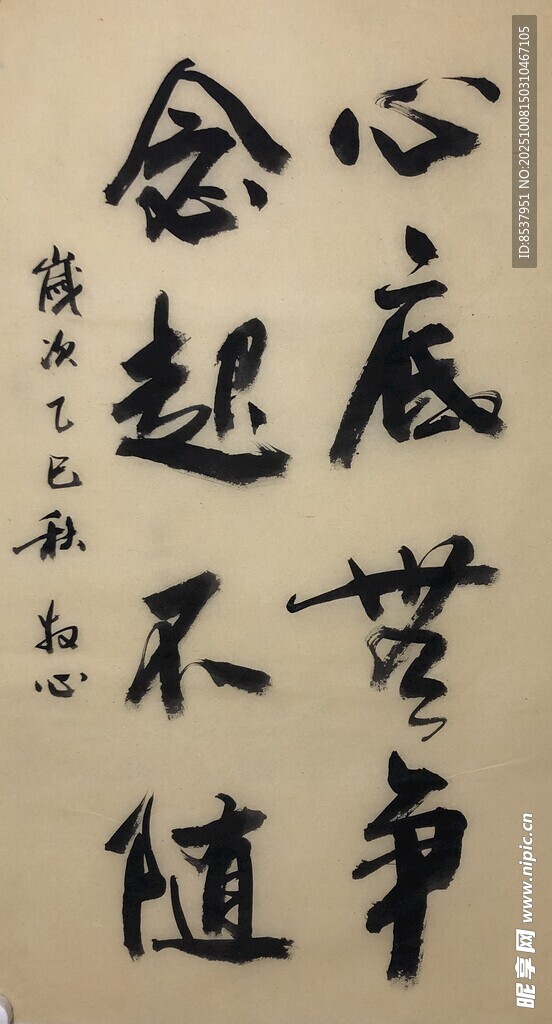 心底無争
念起不随
歲次乙巳秋 牧心
ID:8537951 NO:20251008150310467105
昵享网 www.nipic.cn